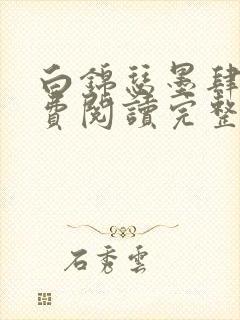 白錦瑟墨肆
費閱讀完整
石秀雲